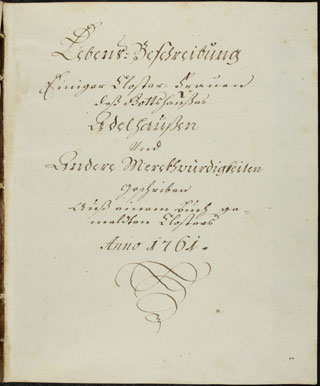 Lebens-Beschreibung
Einiger Closter-Frauen
deß Gottshaußes
Adelhaußen
Und
Andere Merckhwürdigkeiten
Geschriben
Auß einem Buch ge-
melten Closters
Anno 1761.